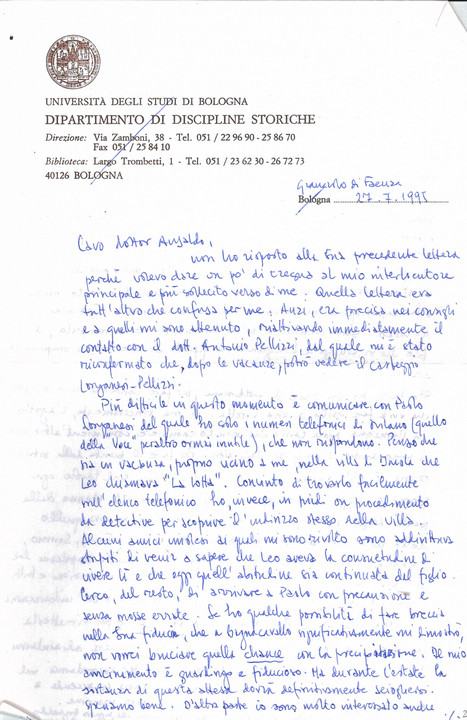 UNIVERSITÀ DEGLI STUDI DI BOLOGNA
DIPARTIMENTO DI DISCIPLINE STORICHE
Direzione: Via Zamboni, 38 - Tel. 051 / 22 96 90 - 25 86 70
Fax 051 / 25 84 10
Biblioteca: Largo Trombetti, 1 - Tel. 051 / 23 62 30 - 26 72 73
40126 BOLOGNA
di Faenza
Bologna 27.7.1995
Caro dottor Ansaldo,
non ho risposto alla Sua precedente lettera
perché volevo dare un po' di tregua al mio interlocutore
principale e più sollecito verso di me. Quella lettera era
tutt'altro che confusa per me. Anzi, era precisa nei consigli
e a quelli mi sono attenuto, riattivando immediatamente il
contatto con il dott. Antonio Pellizzi, dal quale mi è stato
riconfermato che, dopo le vacanze, potrò vedere il carteggio
Longanesi-Pellizzi.
Più difficile in questo momento è comunicare con Paolo
Longanesi del quale ho solo i numeri telefonici di Milano (quello
della "Voce" peraltro ormai inutile), che non rispondono. Penso che
sia in vacanza, proprio vicino a me, nella villa di Imola che
Leo chiamava "La Lotta". Convinto di trovarlo facilmente
sull'elenco telefonico ho, invece, in piedi un procedimento
da detective per scoprire l'indirizzo stesso della villa.
Alcuni amici imolesi ai quali mi sono rivolto sono addirittura
stupiti di venir a sapere che Leo aveva la consuetudine di
vivere lì e che oggi quell'abitudine sia continuata dal figlio.
Cerco, del resto, di arrivare a Paolo con precauzione e
senza mosse errate. Se ho qualche possibilità di fare breccia
nella Sua fiducia, che a Bagnacavallo significativamente mi dimostrò,
non vorrei bruciare quella chance con la precipitazione. Il mio
avvicinamento è guardingo e fiducioso. Ma durante l'estate la
sostanza di questa attesa dovrà definitivamente sciogliersi.
Speriamo bene. D'altra parte io sono molto interessato anche
./2